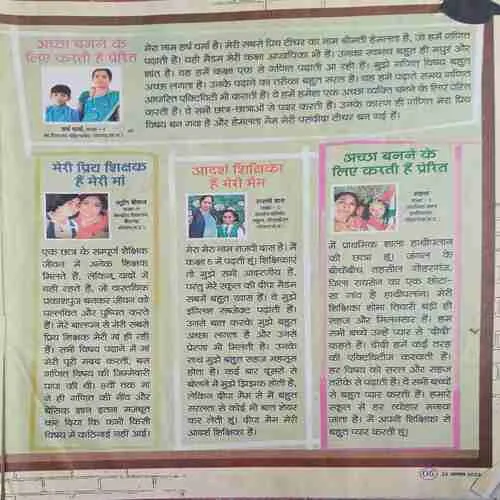 अच्छा बनने के
लिए करती हैं प्रेरित
मेरा नाम हर्ष वर्मा है। मेरी सबसे प्रिय टीचर का नाम श्रीमती हेमलता है, जो हमें गणित
पढ़ाती हैं। वही मैडम मेरी कक्षा अध्यापिका भी हैं। उनका स्वभाव बहुत ही मधुर और
शांत है। वह हमें कक्षा एक से गणित पढ़ाती आ रही हैं। मुझे गणित विषय बहुत
अच्छा लगता है। उनके पढ़ाने का तरीका बहुत सरल है। वह हमें पढ़ाते समय गणित
आधारित एक्टिविटी भी कराती हैं। वे हमें हमेशा एक अच्छा व्यक्ति बनने के लिए प्रेरित
करती हैं। वे सभी छात्र-छात्राओं से प्यार करती हैं। उनके कारण ही गणित मेरा प्रिय
विषय बन गया है और हेमलता मैम मेरी पसंदीदा टीचर बन गई हैं।
हर्ष वर्मा, कक्षा - 5
मेरी प्रिय शिक्षक
हैं मेरी मां
एक छात्र के सम्पूर्ण शैक्षिक
जीवन में अनेक शिक्षक
मिलते हैं, लेकिन यादों में
वही रहते हैं, जो वास्तविक
प्रकाशपुंज बनकर जीवन को
पल्लवित और पुष्पित करते
हैं। मेरे बालमन से मेरी सबसे
प्रिय शिक्षक मेरी मां ही रही
हैं। सभी विषय पढ़ाने में मां
मेरी पूरी मदद करतीं, बस
गणित विषय की जिम्मेवारी
पापा की थी। 5वीं तक मां
ने ही गणित की नींव और
बेसिक ज्ञान इतना मजबूत
कर दिया कि कभी किसी
विषय में कठिनाई नहीं आई।
आदर्श शिक्षिका
हैं मेरी मैम
मेरा मेरा नाम राजवी बास है। मैं
कक्षा 6 में पढ़ती हूं। शिक्षिकाएं
तो मुझे सभी आदरणीय हैं,
परंतु मेरे स्कूल की दीपा मैडम
सबमें बहुत खास हैं। वे मुझे
इंग्लिश सब्जेक्ट पढ़ाती हैं।
उनसे बात करके मुझे बहुत
अच्छा लगता है और उनसे
प्रेरणा भी मिलती है। उनके
साथ मुझे बहुत सहज महसूस
होता है। कई बार दूसरों से
बोलने में मुझे झिझक होती है,
लेकिन दीपा मैम से मैं बहुत
सरलता से कोई भी बात शेयर
कर लेती हूं। दीपा मैम मेरी
आदर्श शिक्षिका हैं।
अच्छा बनने के
लिए करती हैं प्रेरित
में प्राथमिक शाला हाथीपलान
की छात्रा हूं। जंगल के
बीचोंबीच, तहसील गौहरगंज,
जिला रायसेन का एक छोटा-
सा गांव है हाथीपलान। मेरी
शिक्षिका सीमा तिवारी बड़ी ही
सहज और मिलनसार हैं। हम
सभी बच्चे उन्हें प्यार से 'दीदी'
कहते हैं। दीदी हमें कई तरह
की एक्टिविटीज करवाती हैं।
हर विषय को सरल और सहज
तरीके से पढ़ाती हैं। वे सभी बच्चों
से बहुत प्यार करती हैं। हमारे
स्कूल में हर त्योहार मनाया
जाता है। मैं अपनी शिक्षिका से
बहुत प्यार करती हूं।
06